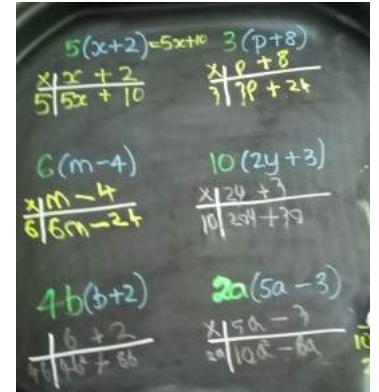 5(x+2)=5x+10
x | x + 2
5 | 5x + 10
3(p+8)
x | p + 8
3 | 3p + 24
6(m-4)
x | m - 4
6 | 6m - 24
10(2y+3)
x | 2y + 3
10 | 20y + 30
4b(b+2)
b + 2
4b | 4b² + 8b
2a(5a-3)
x | 5a - 3
2a | 10a² - 6a
10